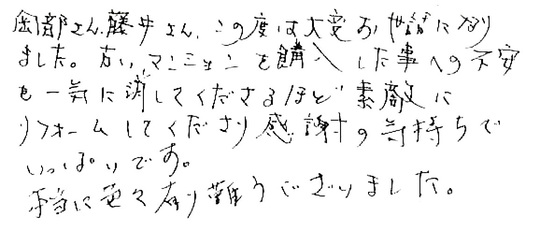 岡部さん、藤井さん、この度は大変お世話になり
ました。古いマンションを購入した事への不安
も一気に消してくださるほど素敵に
リフォームしてくださり感謝の気持ちで
いっぱいです。
本当に色々有り難うございました。